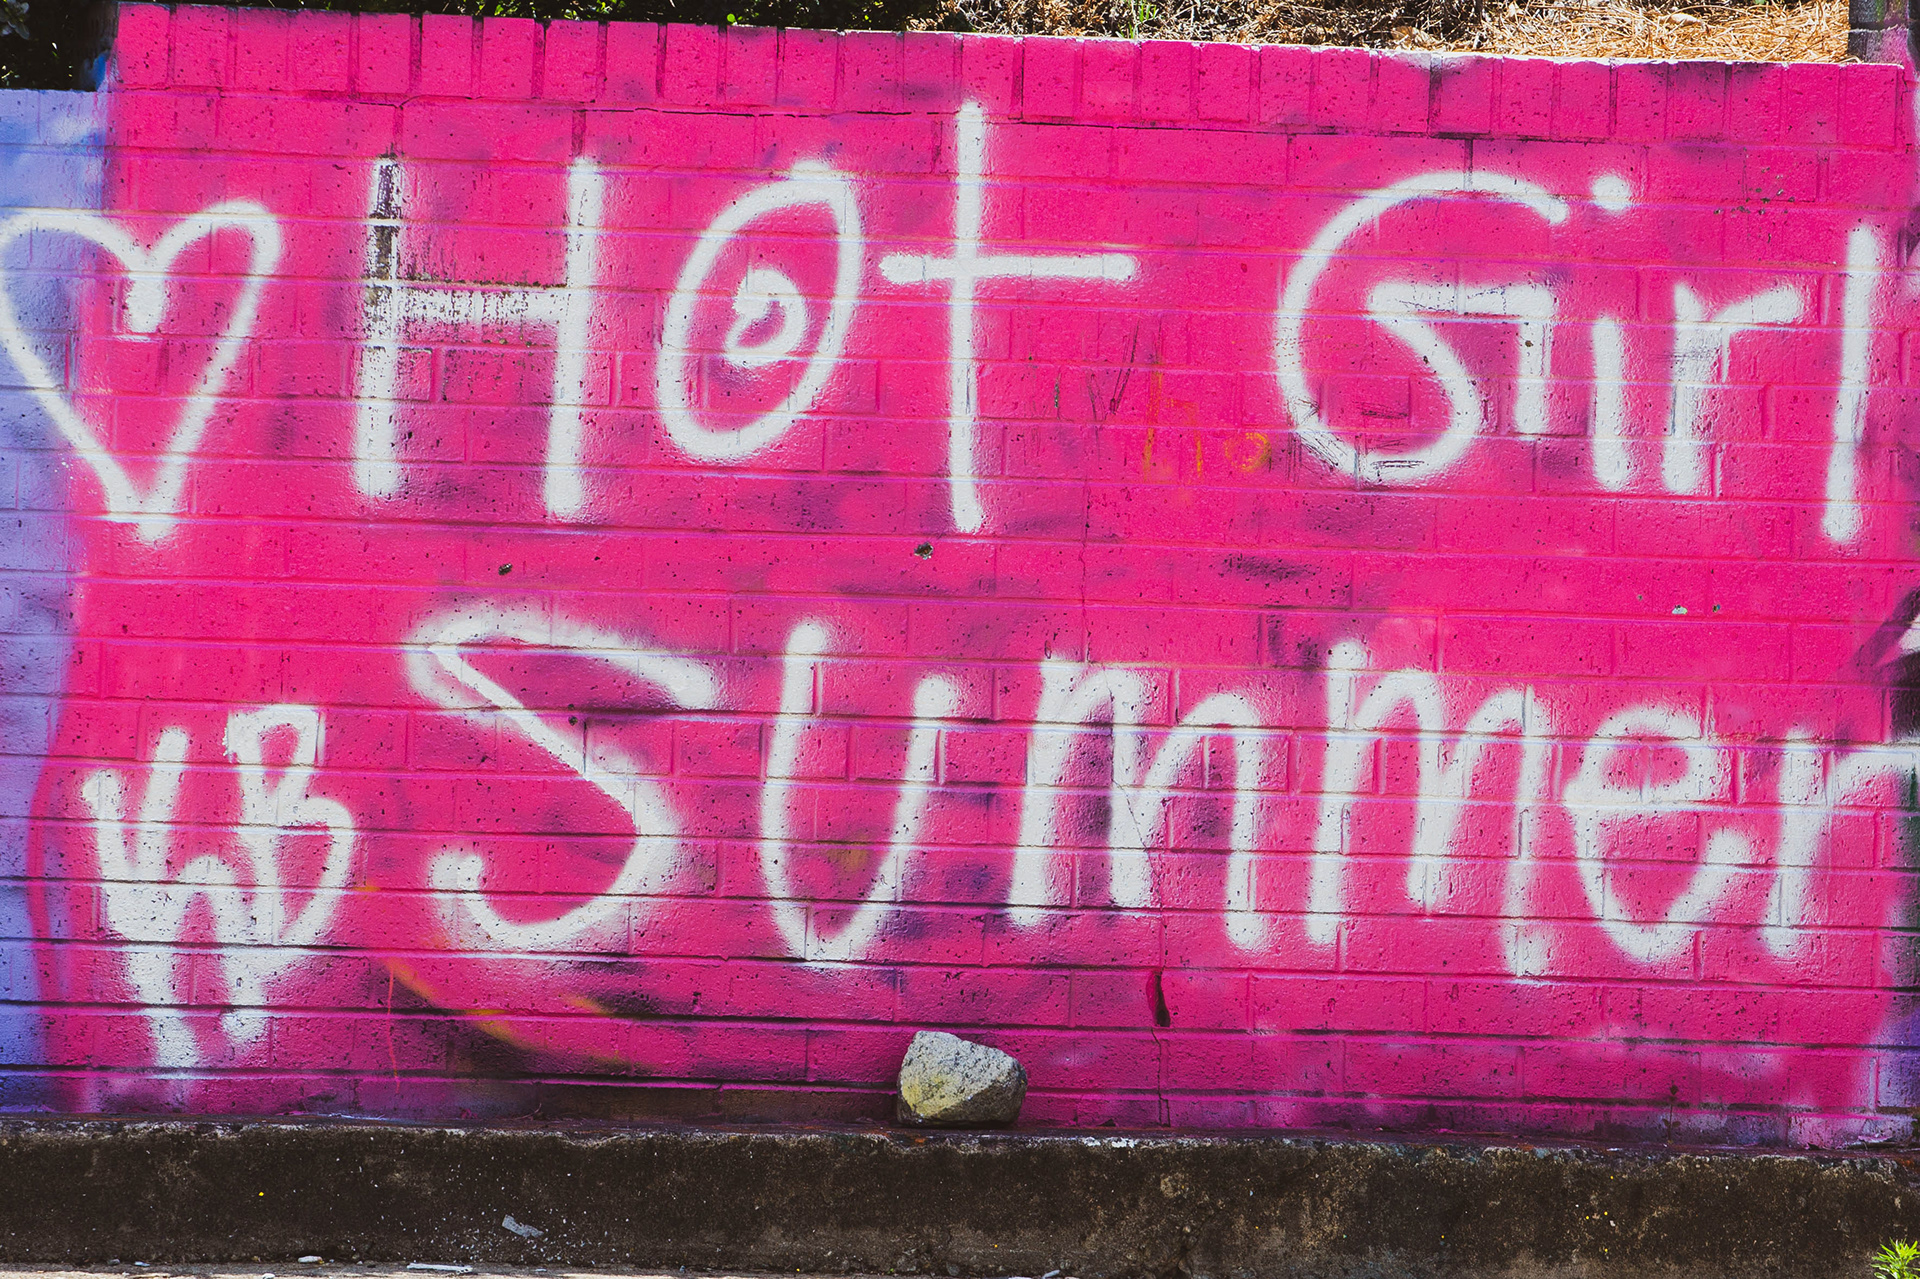 Hot Girl
Summer